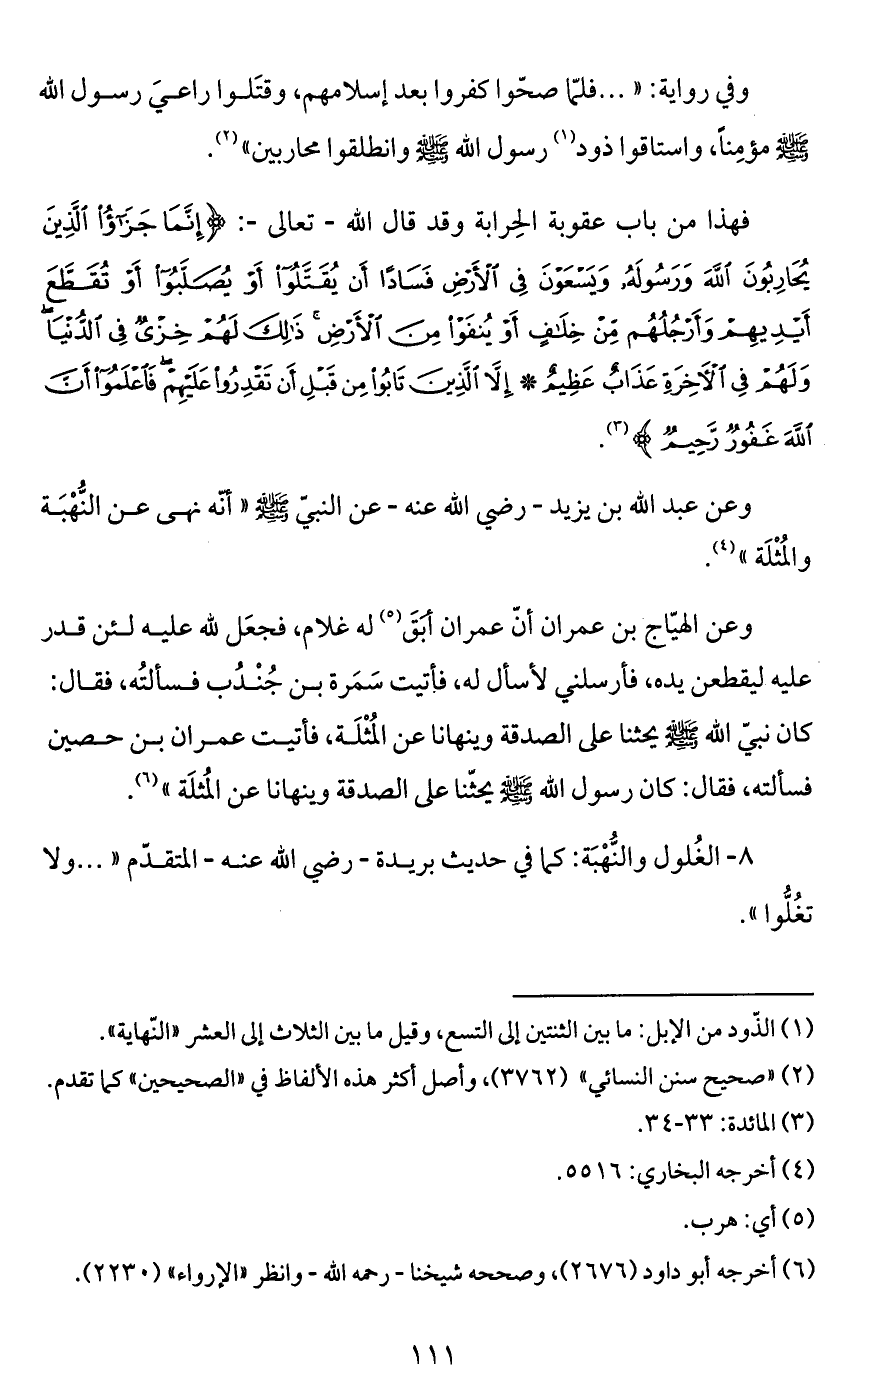 وفي رواية: « ...فلمّا صحّوا كفروا بعد إسلامهم، وقتَلـوا راعـيَ رسـول الله
ﷺ مؤمِناً، واستاقوا ذود(١) رسول الله ﷺ وانطلقوا محاربين»(٢).
فهذا من باب عقوبة الحِرابة وقد قال الله - تعالى -: ﴿إِنَّمَا جَزَٰٓؤُا۟ ٱلَّذِينَ
يُحَارِبُونَ ٱللَّهَ وَرَسُولَهُۥ وَيَسْعَوْنَ فِى ٱلْأَرْضِ فَسَادًا أَن يُقَتَّلُوٓا۟ أَوْ يُصَلَّبُوٓا۟ أَوْ تُقَطَّعَ
أَيْدِيهِمْ وَأَرْجُلُهُم مِّنْ خِلَٰفٍ أَوْ يُنفَوْا۟ مِنَ ٱلْأَرْضِ ۚ ذَٰلِكَ لَهُمْ خِزْىٌ فِى ٱلدُّنْيَا ۖ
وَلَهُمْ فِى ٱلْآخِرَةِ عَذَابٌ عَظِيمٌ * إِلَّا ٱلَّذِينَ تَابُوا۟ مِن قَبْلِ أَن تَقْدِرُوا۟ عَلَيْهِمْ ۖ فَٱعْلَمُوٓا۟ أَنَّ
ٱللَّهَ غَفُورٌ رَّحِيمٌ ﴾(٣).
وعن عبد الله بن يزيد - رضي الله عنه - عن النبيّ ﷺ « أنّه نهـى عـن النُّهْبَـة
والمُثْلَة »(٤).
وعن الهيّاج بن عمران أنّ عمران أبَقَ(٥) له غلام، فجعَل لله عليـه لـئن قـدر
عليه ليقطعن يده، فأرسلني لأسأل له، فأتيت سَمَرة بـن جُنْـدُب فـسألتُه، فقـال:
كان نبيّ الله ﷺ يحثنا على الصدقة وينهانا عن المُثْلَـة، فأتيـت عمـران بـن حـصين
فسألته، فقال: كان رسول الله ﷺ يحثّنا على الصدقة وينهانا عن المُثلَة »(٦).
٨- الغُلول والنُّهْبَة: كما في حديث بريـدة - رضي الله عنـه - المتقـدّم « ...ولا
تغُلُّوا ».
(١) الذّود من الإبل: ما بين الثنتين إلى التسع، وقيل ما بين الثلاث إلى العشر «النّهاية».
(٢) «صحيح سنن النسائي» (٣٧٦٢)، وأصل أكثر هذه الألفاظ في «الصحيحين» كما تقدم.
(٣) المائدة: ٣٣-٣٤.
(٤) أخرجه البخاري: ٥٥١٦.
(٥) أي: هرب.
(٦) أخرجه أبو داود (٢٦٧٦)، وصححه شيخنا - رحمه الله - وانظر «الإرواء» (٢٢٣٠).
١١١